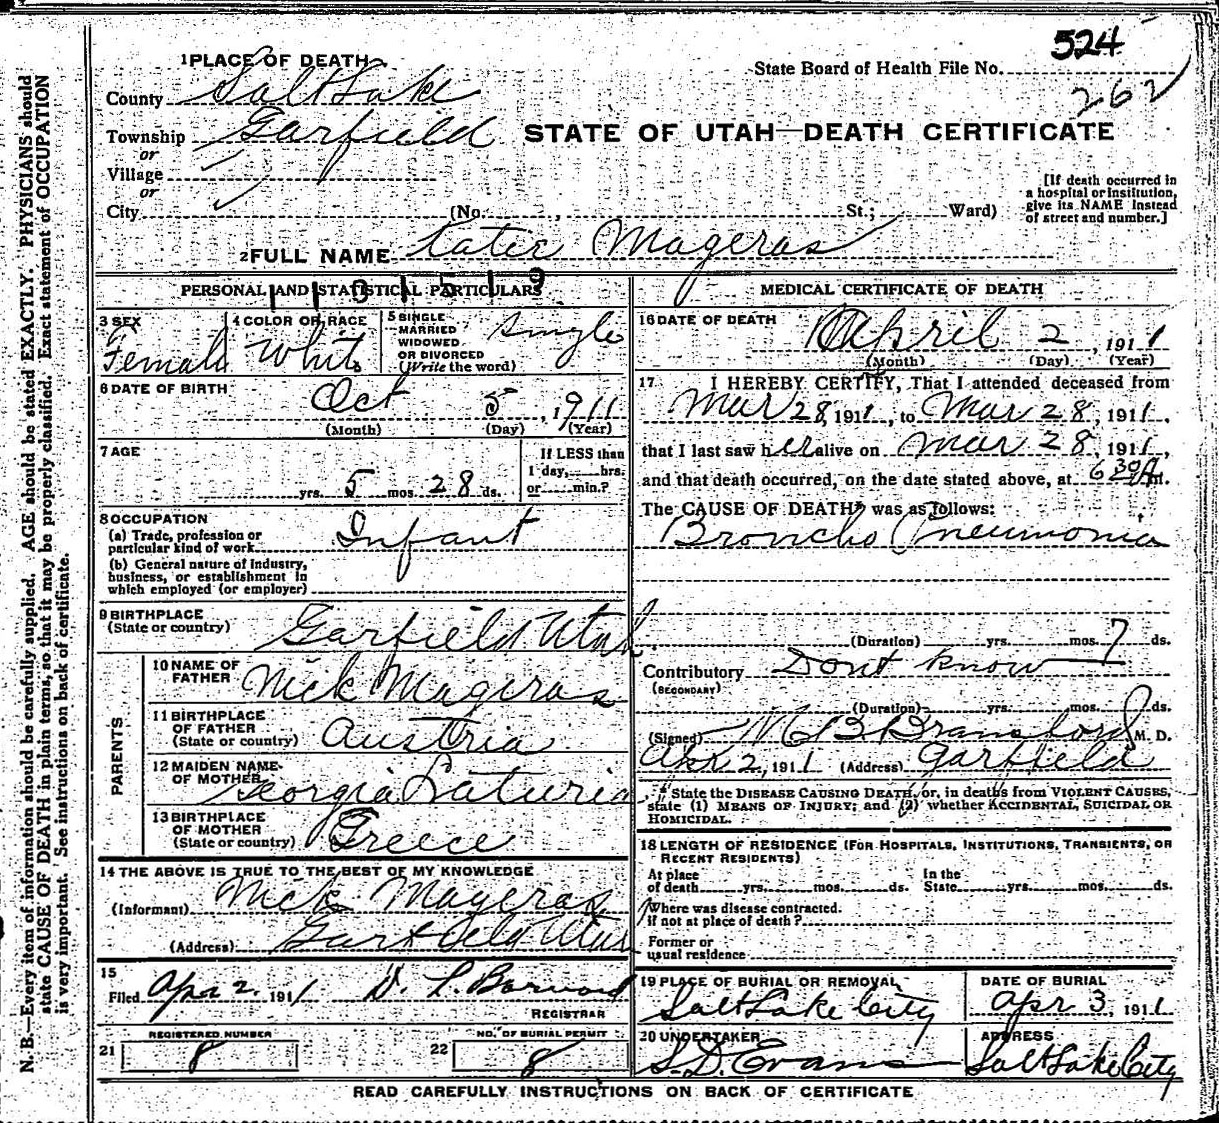 524
1 PLACE OF DEATH
State Board of Health File No.
262
County Salt Lake
Township Garfield
STATE OF UTAH—DEATH CERTIFICATE
or
Village
or
City (No. , St.; Ward)
[If death occurred in a hospital or institution, give its NAME instead of street and number.]
2 FULL NAME Katie Mageras
PERSONAL AND STATISTICAL PARTICULARS
3 SEX Female
4 COLOR OR RACE White
5 SINGLE MARRIED WIDOWED OR DIVORCED (Write the word) Single
6 DATE OF BIRTH Oct 5, 1911
(Month) (Day) (Year)
7 AGE
yrs. 5 mos. 28 ds.
If LESS than 1 day, hrs. or min.?
8 OCCUPATION
(a) Trade, profession or particular kind of work Infant
(b) General nature of industry, business, or establishment in which employed (or employer)
9 BIRTHPLACE (State or country) Garfield Utah
PARENTS
10 NAME OF FATHER Nick Mageras
11 BIRTHPLACE OF FATHER (State or country) Austria
12 MAIDEN NAME OF MOTHER Georgia Laturia
13 BIRTHPLACE OF MOTHER (State or country) Greece
14 THE ABOVE IS TRUE TO THE BEST OF MY KNOWLEDGE
(Informant) Nick Mageras
(Address) Garfield Utah
15
Filed Apr 2. 1911
REGISTRAR
REGISTERED NUMBER
21 8
NO. OF BURIAL PERMIT
22 8
MEDICAL CERTIFICATE OF DEATH
16 DATE OF DEATH April 2, 1911
(Month) (Day) (Year)
17 I HEREBY CERTIFY, That I attended deceased from
Mar 28, 1911, to Mar 28, 1911,
that I last saw her alive on Mar 28, 1911,
and that death occurred, on the date stated above, at 6 30 A m.
The CAUSE OF DEATH* was as follows:
Broncho Pneumonia
(Duration) yrs. mos. 7 ds.
Contributory Dont know
(SECONDARY)
(Duration) yrs. mos. ds.
(Signed) M B Bransford M. D.
Apr 2, 1911 (Address) Garfield
* State the DISEASE CAUSING DEATH, or, in deaths from VIOLENT CAUSES, state (1) MEANS OF INJURY; and (2) whether ACCIDENTAL, SUICIDAL OR HOMICIDAL.
18 LENGTH OF RESIDENCE (FOR HOSPITALS, INSTITUTIONS, TRANSIENTS, OR RECENT RESIDENTS)
At place of death yrs. mos. ds. In the State yrs. mos. ds.
Where was disease contracted, if not at place of death?
Former or usual residence
19 PLACE OF BURIAL OR REMOVAL Salt Lake City
DATE OF BURIAL Apr 3, 1911
20 UNDERTAKER S. D. Evans
ADDRESS Salt Lake City
READ CAREFULLY INSTRUCTIONS ON BACK OF CERTIFICATE
N. B.—Every item of information should be carefully supplied. AGE should be stated EXACTLY. PHYSICIANS should
state CAUSE OF DEATH in plain terms, so that it may be properly classified. Exact statement of OCCUPATION
is very important. See instructions on back of certificate.